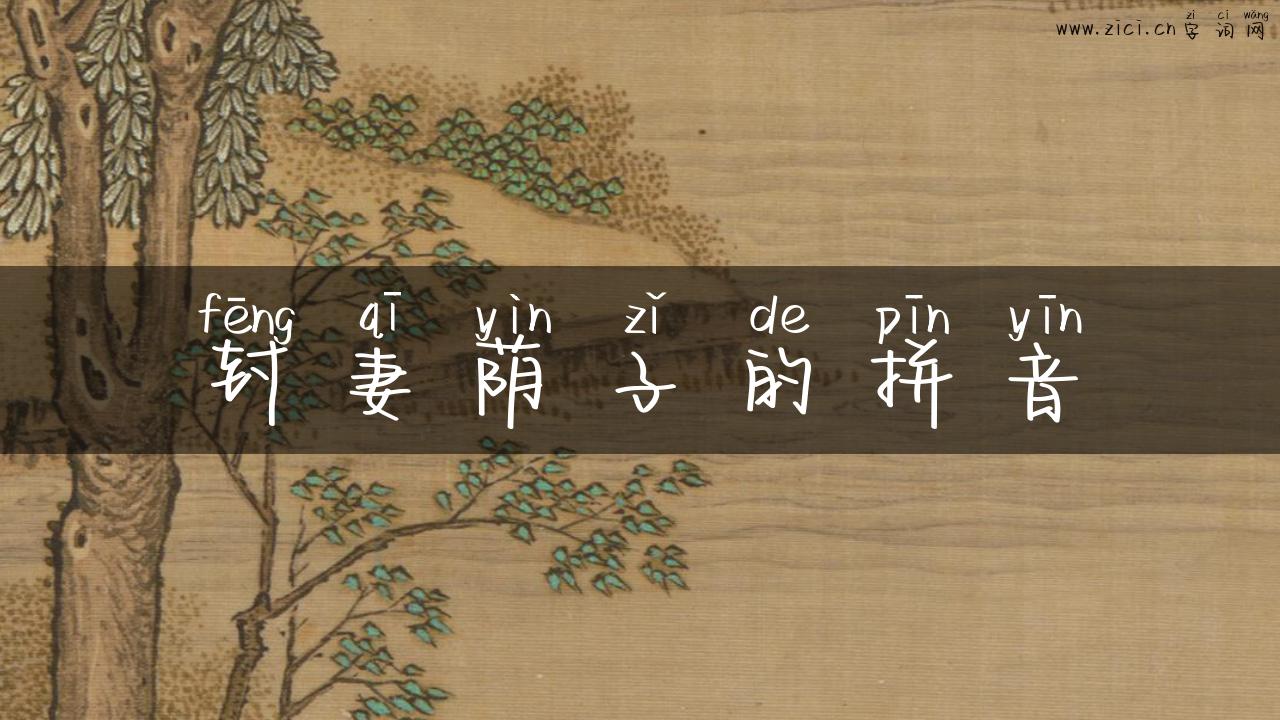 zì cí wǎng
www.zici.cn 字词网
fēng qī yìn zǐ de pīn yīn
封妻荫子的拼音